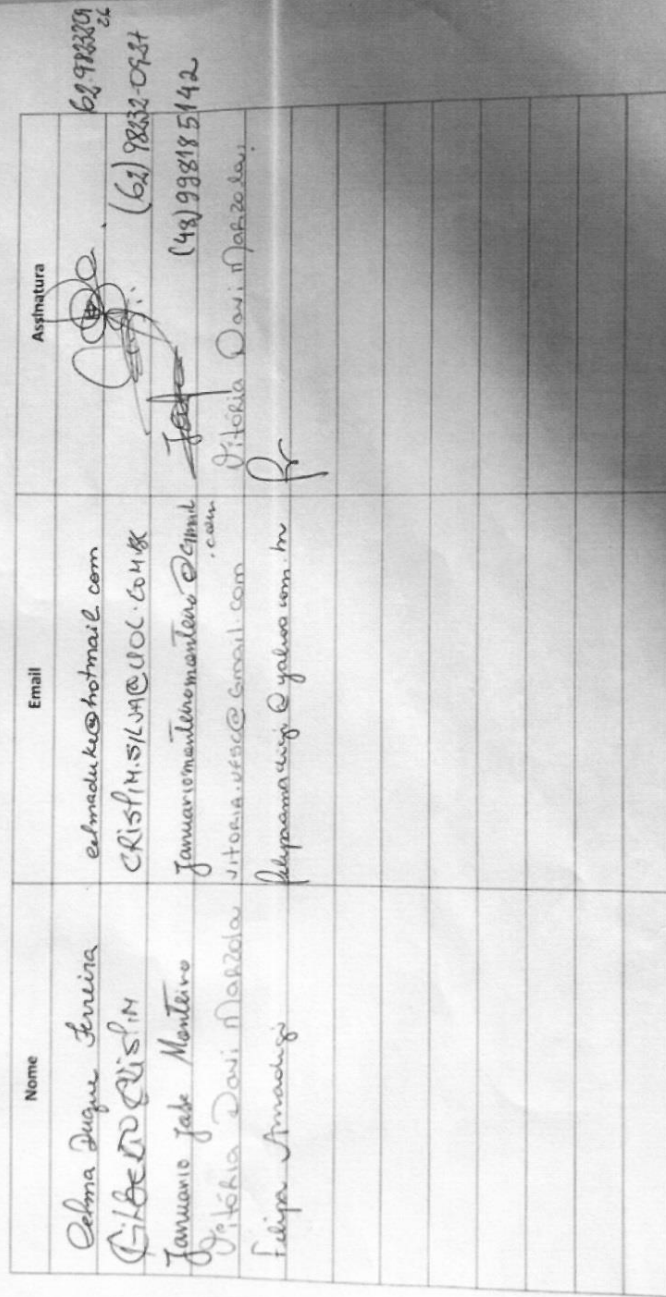 Nome Email Assinatura
Celma Duque Ferreira celmaduke@hotmail.com
GILBERTO CRISPIM CRISPIM.SILVA@UOL.COM.BR (62) 98232-0921
Januario José Monteiro Januariomonteiromonteiro@gmail.com (48) 998185142
Vitória Davi Marzola VITORIA.UFSC@Gmail.com Vitória Davi Marzola.
Felipa Amadigi felipaamadigi@yahoo.com.br